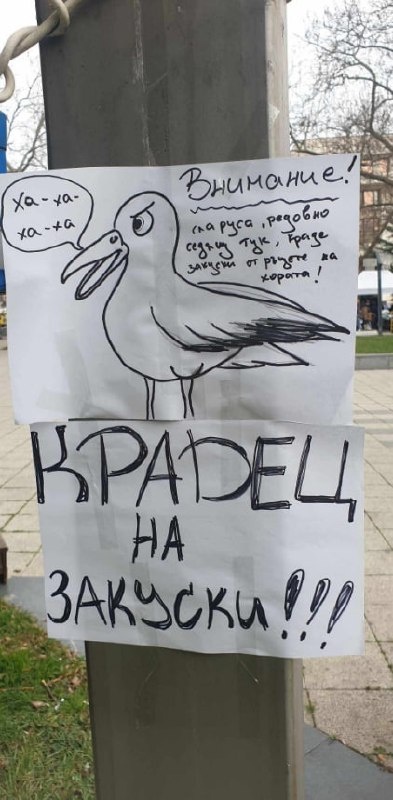 Ха-ха-
ха-ха
Внимание!
гларуса, редовно
седящ тук, краде
закуски от ръцете на
хората!
КРАДЕЦ
НА
ЗАКУСКИ!!!